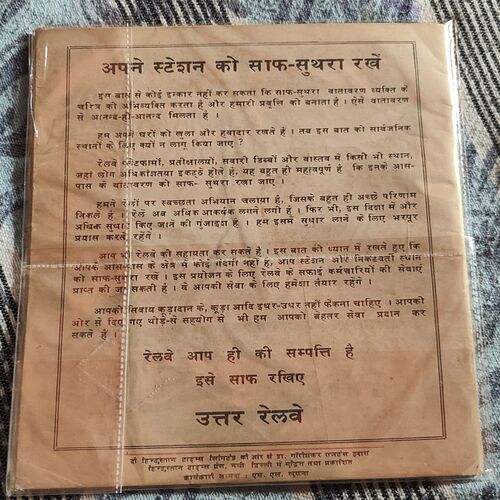 अपने स्टेशन को साफ-सुथरा रखें
इस बात से कोई इन्कार नहीं कर सकता कि साफ-सुथरा वातावरण व्यक्ति के
चरित्र को अभिव्यक्ति करता है और हमारी प्रवृत्ति को बनाता है । ऐसे वातावरण
से आनन्द-ही-आनन्द मिलता है ।
हम अपने घरों को खुला और हवादार रखते हैं । तब इस बात को सार्वजनिक
स्थानों के लिए क्यों न लागू किया जाए ?
रेलवे प्लेटफार्मों, प्रतीक्षालयों, सवारी डिब्बों और वास्तव में किसी भी स्थान,
जहां लोग अधिकांशतया इकट्ठे होते हैं, यह बहुत ही महत्वपूर्ण है कि इनके आस-
पास के वातावरण को साफ- सुथरा रखा जाए ।
हमने रेलों पर स्वच्छता अभियान चलाया है, जिसके बहुत ही अच्छे परिणाम
निकले हैं । रेलें अब अधिक आकर्षक लगने लगी हैं । फिर भी, इस दिशा में और
अधिक सुधार किए जाने की गुंजाइश है । हम इसमें सुधार लाने के लिए भरपूर
प्रयास करते रहेंगे ।
आप भी रेलवे की सहायता कर सकते हैं । इस बात को ध्यान में रखते हुए कि
आपके आसपास के क्षेत्र में कोई गंदगी नहीं है, आप स्टेशन और निकटवर्ती स्थान
को साफ-सुथरा रखें । इस प्रयोजन के लिए रेलवे के सफाई कर्मचारियों की सेवाएं
प्राप्त की जा सकती हैं । वे आपकी सेवा के लिए हमेशा तैयार रहेंगे ।
आपको सिवाय कूड़ादान के, कूड़ा आदि इधर-उधर नहीं फेंकना चाहिए । आपकी
ओर से दिए गए थोड़े-से सहयोग से भी हम आपको बेहतर सेवा प्रदान कर
सकते हैं ।
रेलवे आप ही की सम्पत्ति है
इसे साफ रखिए
उत्तर रेलवे
दी हिन्दुस्तान टाइम्स लिमिटेड की ओर से डा. गौरीशंकर राजहंस द्वारा
हिन्दुस्तान टाइम्स प्रेस, नयी दिल्ली में मुद्रित तथा प्रकाशित
कार्यकारी अध्यक्ष : एस. एल. खुराना